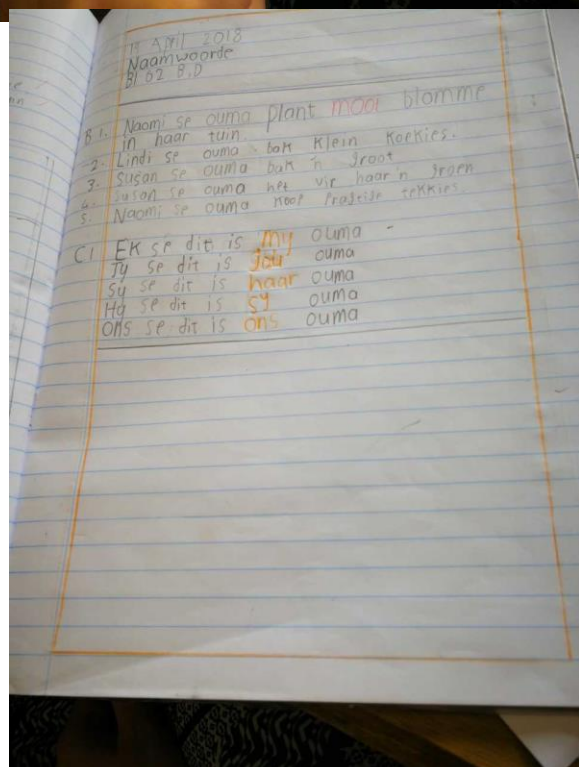 19 April 2018
Naamwoorde
Bl 62 B,D
B 1. Naomi se ouma plant mooi blomme
in haar tuin.
2. Lindi se ouma bak klein koekies.
3. Susan se ouma bak 'n groot
4. Susan se ouma het vir haar 'n groen
5. Naomi se ouma koop tekkies.
C1 EK se dit is my ouma
Jy se dit is jou ouma
Sy se dit is haar ouma
Hy se dit is sy ouma
Ons se dit is ons ouma